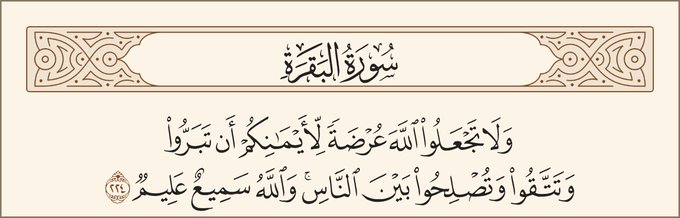 سُورَةُ البَقَرَةِ
وَلَا تَجْعَلُوا۟ ٱللَّهَ عُرْضَةً لِّأَيْمَـٰنِكُمْ أَن تَبَرُّوا۟
وَتَتَّقُوا۟ وَتُصْلِحُوا۟ بَيْنَ ٱلنَّاسِ ۗ وَٱللَّهُ سَمِيعٌ عَلِيمٌ ٢٢٤